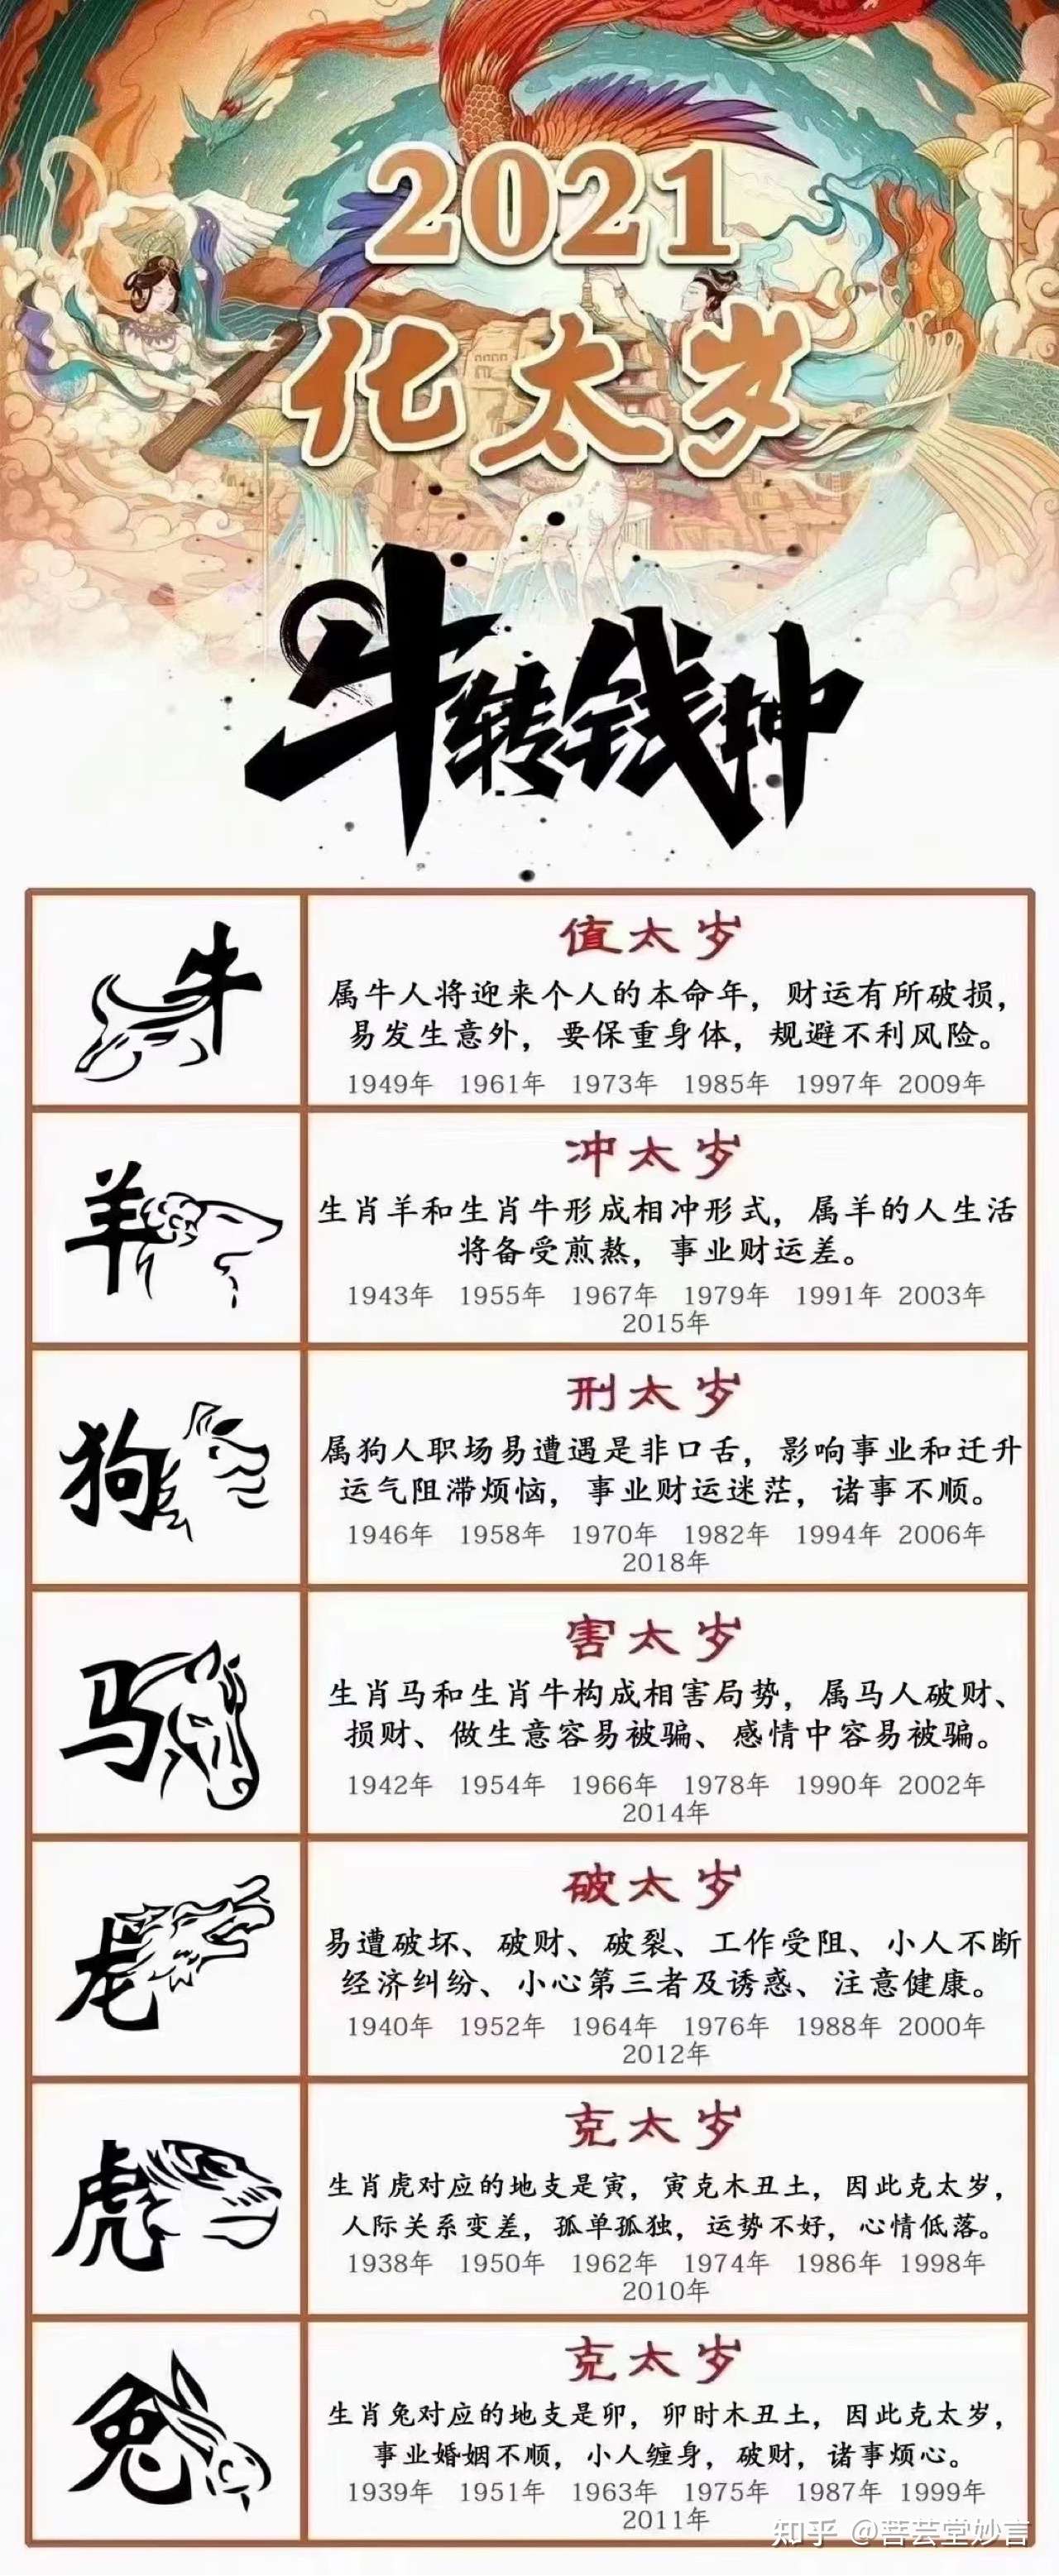 2021
化太岁
牛转钱坤
牛
值太岁
属牛人将迎来个人的本命年，财运有所破损，
易发生意外，要保重身体，规避不利风险。
1949年 1961年 1973年 1985年 1997年 2009年
羊
冲太岁
生肖羊和生肖牛形成相冲形式，属羊的人生活
将备受煎熬，事业财运差。
1943年 1955年 1967年 1979年 1991年 2003年
2015年
狗
刑太岁
属狗人职场易遭遇是非口舌，影响事业和迁升
运气阻滞烦恼，事业财运迷茫，诸事不顺。
1946年 1958年 1970年 1982年 1994年 2006年
2018年
马
害太岁
生肖马和生肖牛构成相害局势，属马人破财、
损财、做生意容易被骗、感情中容易被骗。
1942年 1954年 1966年 1978年 1990年 2002年
2014年
龙
破太岁
易遭破坏、破财、破裂、工作受阻、小人不断
经济纠纷、小心第三者及诱惑、注意健康。
1940年 1952年 1964年 1976年 1988年 2000年
2012年
虎
克太岁
生肖虎对应的地支是寅，寅克木丑土，因此克太岁，
人际关系变差，孤单孤独，运势不好，心情低落。
1938年 1950年 1962年 1974年 1986年 1998年
2010年
兔
克太岁
生肖兔对应的地支是卯，卯时木丑土，因此克太岁，
事业婚姻不顺，小人缠身，破财，诸事烦心。
1939年 1951年 1963年 1975年 1987年 1999年
2011年
知乎 @菩芸堂妙言